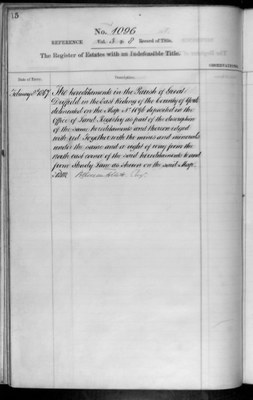 15
No. 1096
REFERENCE Vol. 3 p. 8 Record of Title.
The Register of Estates with an Indefeasible Title.
Date of Entry. Description. OBSERVATIONS
February 1867 The hereditaments in the Parish of Great
Driffield in the East Riding of the County of York
delineated on the Map No. 1096 deposited in the
Office of Land Registry as part of the description
of the same hereditaments and thereon edged
with red Together with the mines and minerals
under the same and a right of way from the
north east corner of the said hereditaments to and
from Lane as shown on the said Map